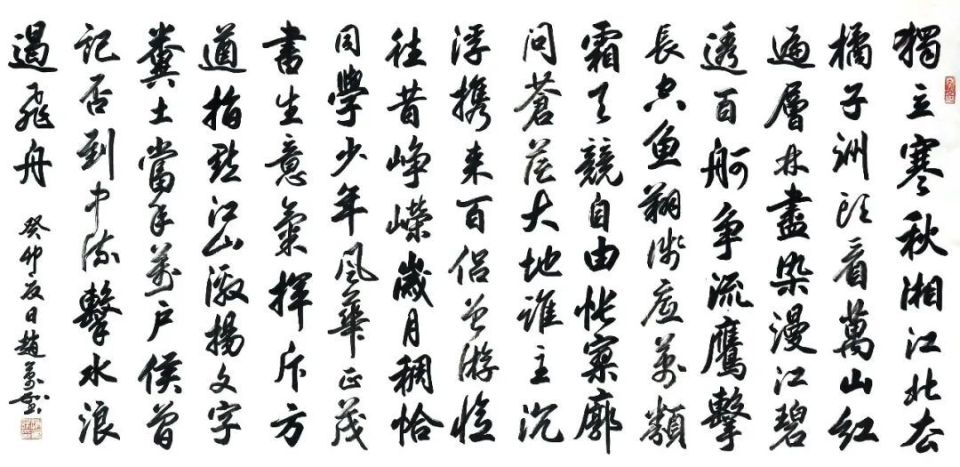 獨立寒秋湘江北去
橘子洲頭看萬山紅
遍層林盡染漫江碧
透百舸争流鷹擊
長空魚翔淺底萬類
霜天競自由悵寥廓
問蒼茫大地誰主沉
浮携來百侣曾游憶
往昔崢嶸歲月稠恰
同學少年風華正茂
書生意氣揮斥方
遒指點江山激揚文字
糞土當年萬户侯曾
記否到中流擊水浪
遏飛舟
癸卯夏日趙